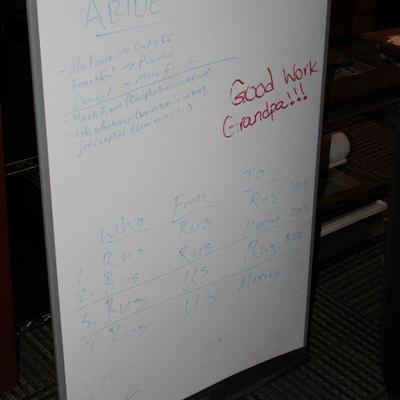 ABIDE
- No Fruit → Cut off
- Fruitful → Pruned
- Pruned → More Fruit
- Much Fruit
- Ask Whatever
- Joy Complete
Good Work
Grandpa!!!
Who From To
1. Rus Rus Rus
2. Rus Rus Mexico
3. Rus US Rus 80%
4. Rus US Mexico